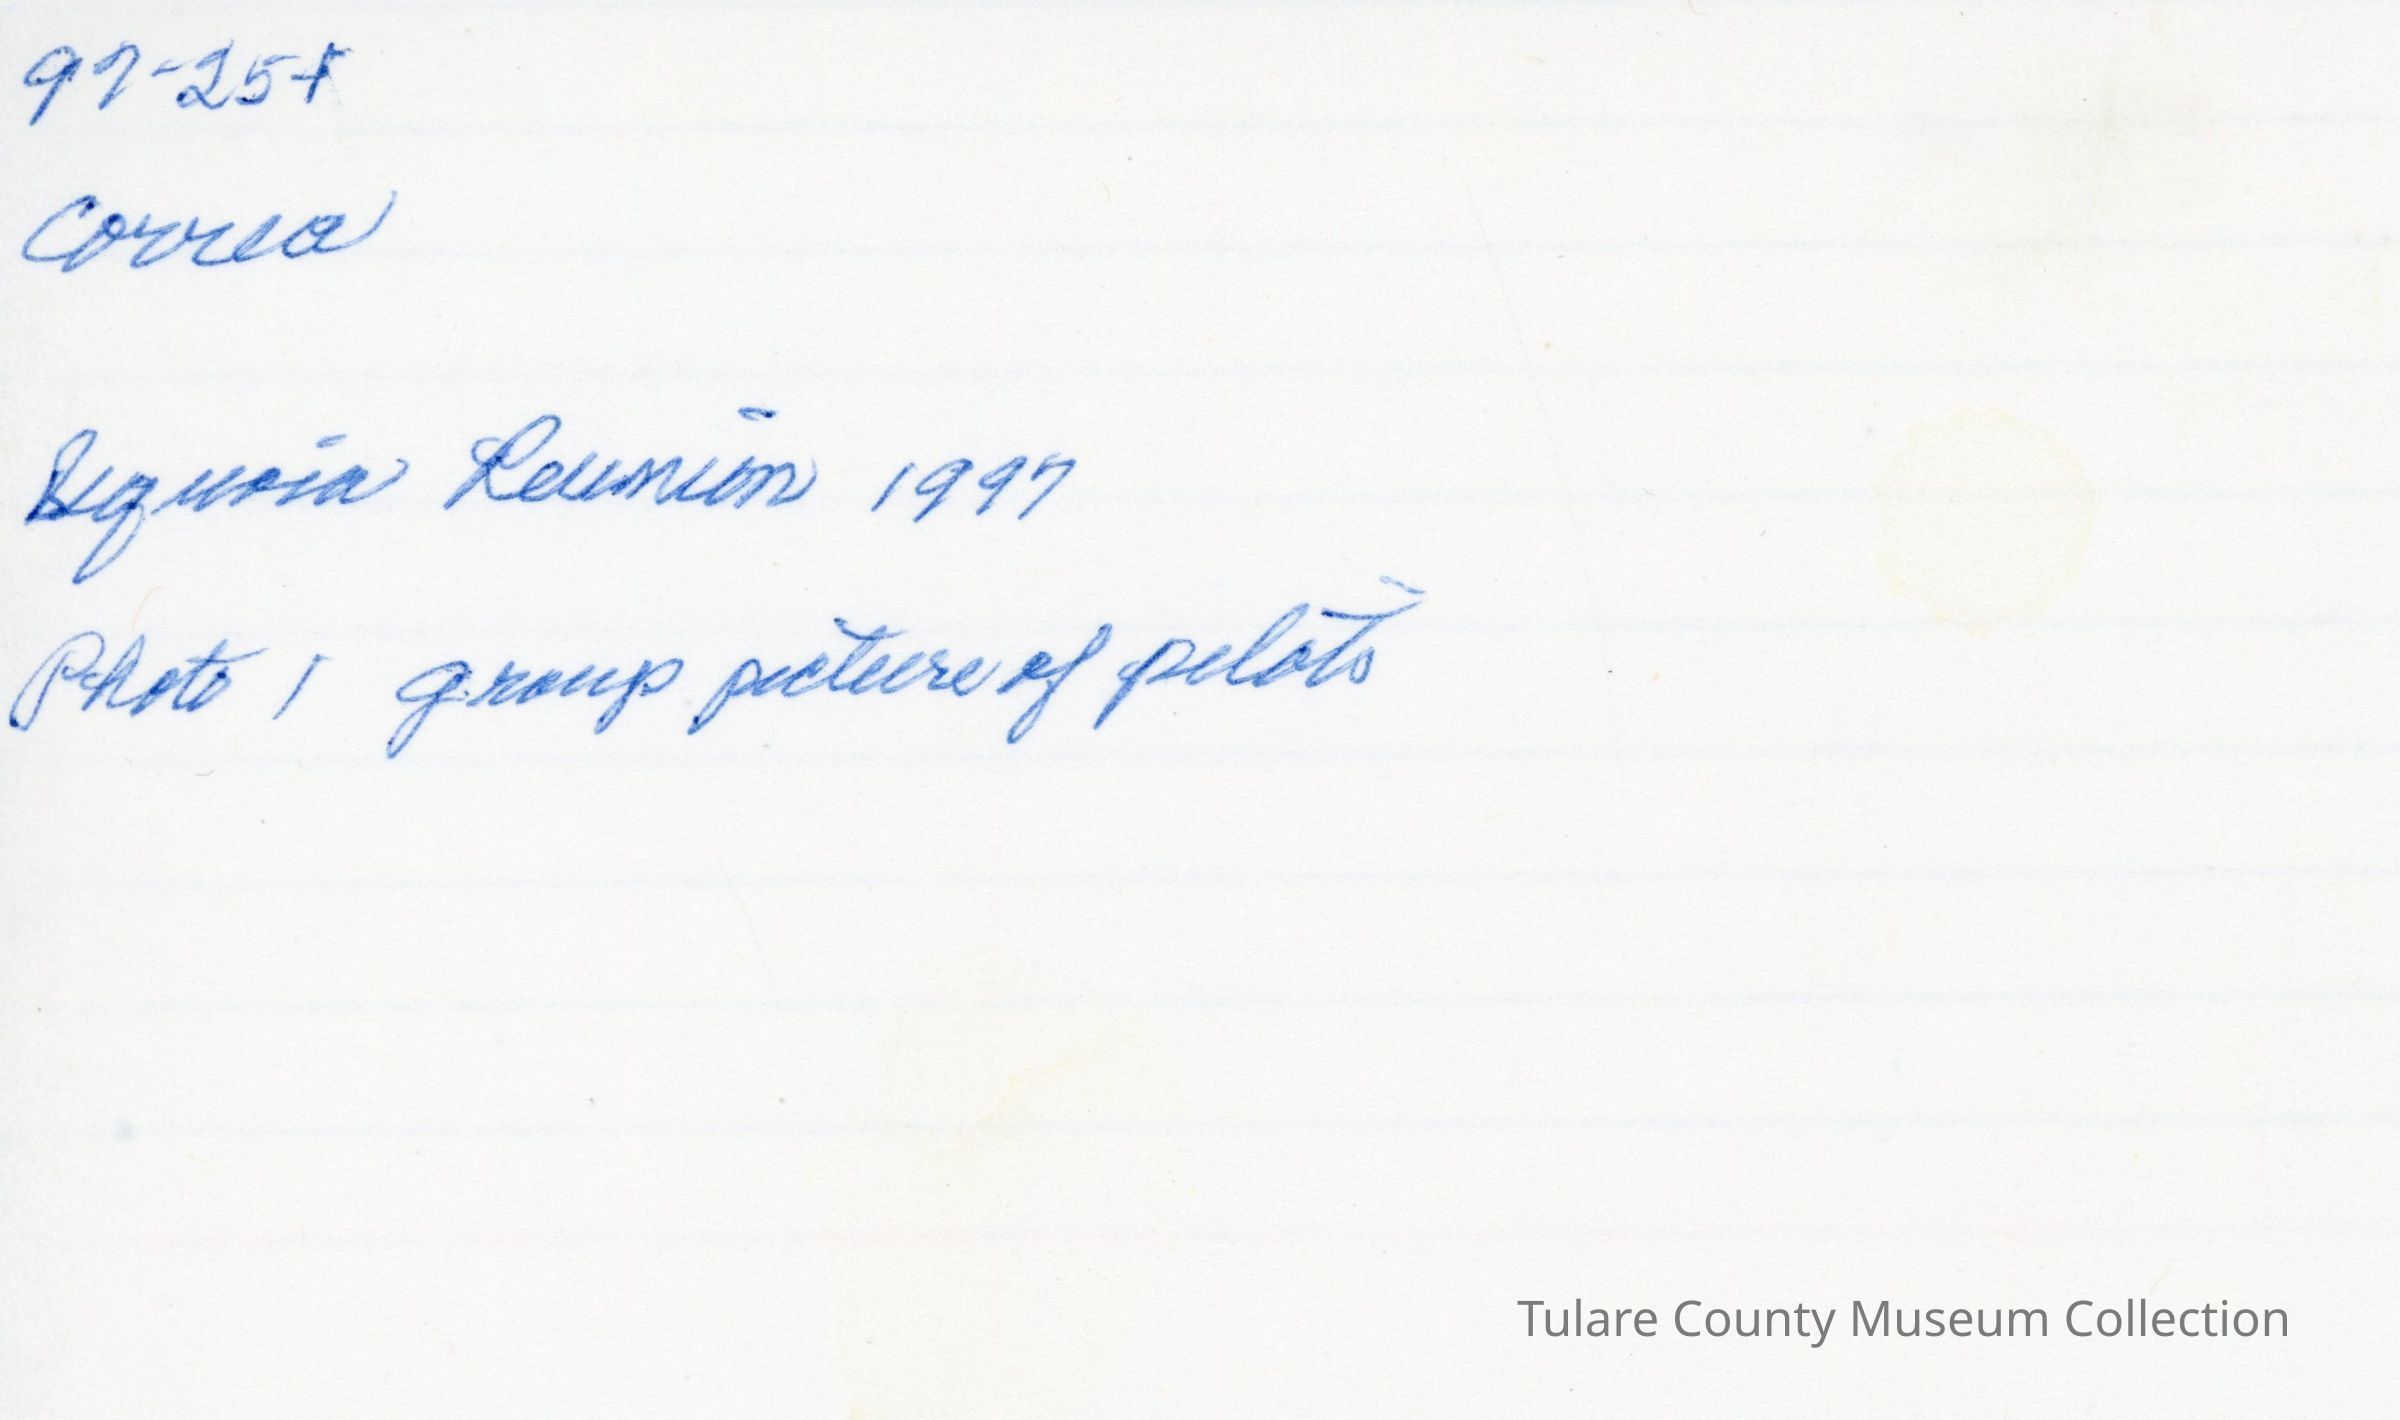 97-25+
Correa
Sequoia Reunion 1997
Photo 1 group picture of pilots
Tulare County Museum Collection